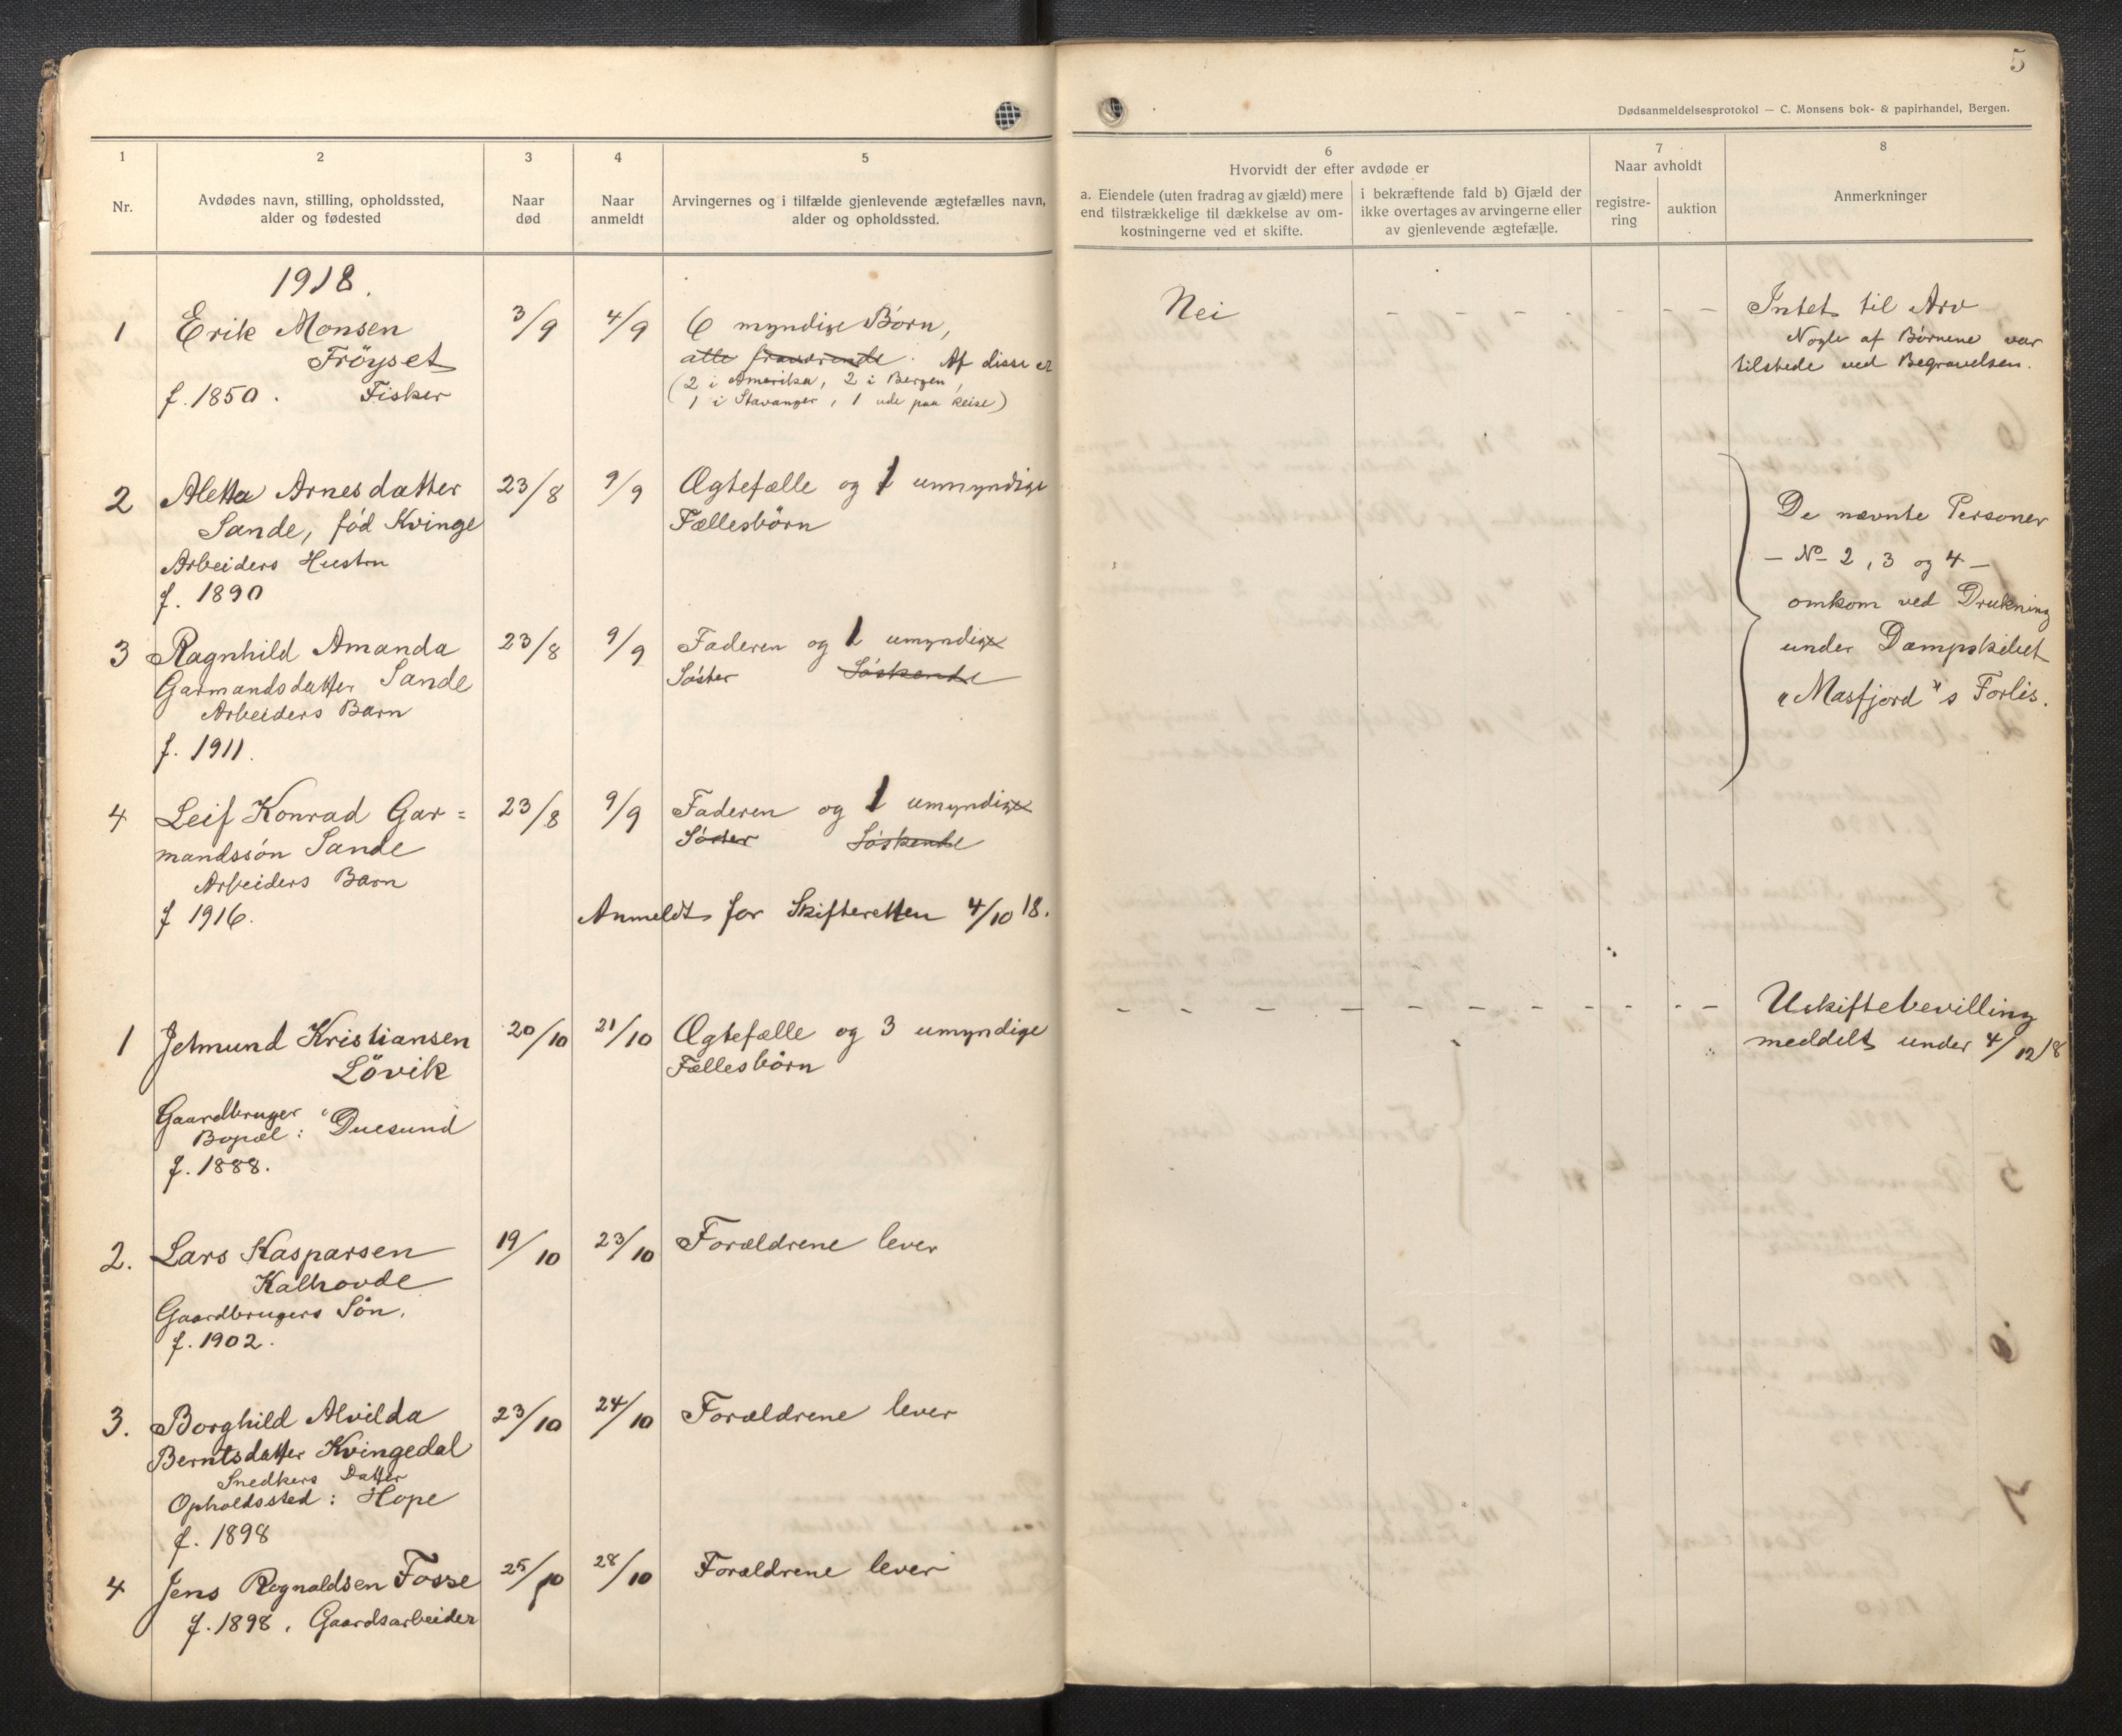 5
Dødsanmeldelsesprotokol — C. Monsens bok- & papirhandel, Bergen.
1
2
3
4
5
6
7
8
Nr.
Avdødes navn, stilling, opholdssted,
alder og fødested
Naar
død
Naar
anmeldt
Arvingernes og i tilfælde gjenlevende ægtefælles navn,
alder og opholdssted.
Hvorvidt der efter avdøde er
a. Eiendele (uten fradrag av gjæld) mere
end tilstrækkelige til dækkelse av om-
kostningerne ved et skifte.
i bekræftende fald b) Gjæld der
ikke overtages av arvingerne eller
av gjenlevende ægtefælle.
Naar avholdt
registre-
ring
auktion
Anmerkninger
1918.
1 Erik Monsen 3/9 4/9 6 myndige Börn,
Fröyset alle fraværende. Af disse er
f. 1850. Fisker (2 i Amerika, 2 i Bergen,
1 i Stavanger, 1 ude paa Reise)
Nei - - - - - - Intet til Arv
Nogle af Börnene var
tilstede ved Begravelsen.
2 Aletta Arnesdatter 23/8 9/9 Ægtefælle og 1 umyndige
Sande, fód Kvinge Fællesbörn
Arbeiders Hustru
f. 1890
3 Ragnhild Amanda 23/8 9/9 Faderen og 1 umyndige
Garmandsdatter Sande Sóster Sóskende
Arbeiders Barn
f. 1911.
4 Leif Konrad Gar= 23/8 9/9 Faderen og 1 umyndige
mandssón Sande Sóster Sóskende
Arbeiders Barn
f 1916. Anmeldt for Skifteretten 4/10 18.
De nævnte Personer
— No 2, 3 og 4 —
omkom ved Drukning
under Dampskibet
"Masfjord"s Forlis.
1 Jetmund Kristiansen 20/10 21/10 Ægtefælle og 3 umyndige
Lövik Fællesbörn
Gaardbruger
Bopæl: Duesund
f. 1888.
- - - - - - - - - - Uskiftebevilling
meddelt under 4/12 18
2. Lars Kasparsen 19/10 23/10 Forældrene lever
Kalhovde
Gaardbrugers Sön.
f. 1902.
3. Borghild Alvilda 23/10 24/10 Forældrene lever
Berntsdatter Kvingedal
Snedkers Datter
Opholdssted: Hope
f. 1898
4 Jens Rognaldsen Fosse 25/10 28/10 Forældrene lever
f. 1898, Gaardsarbeider